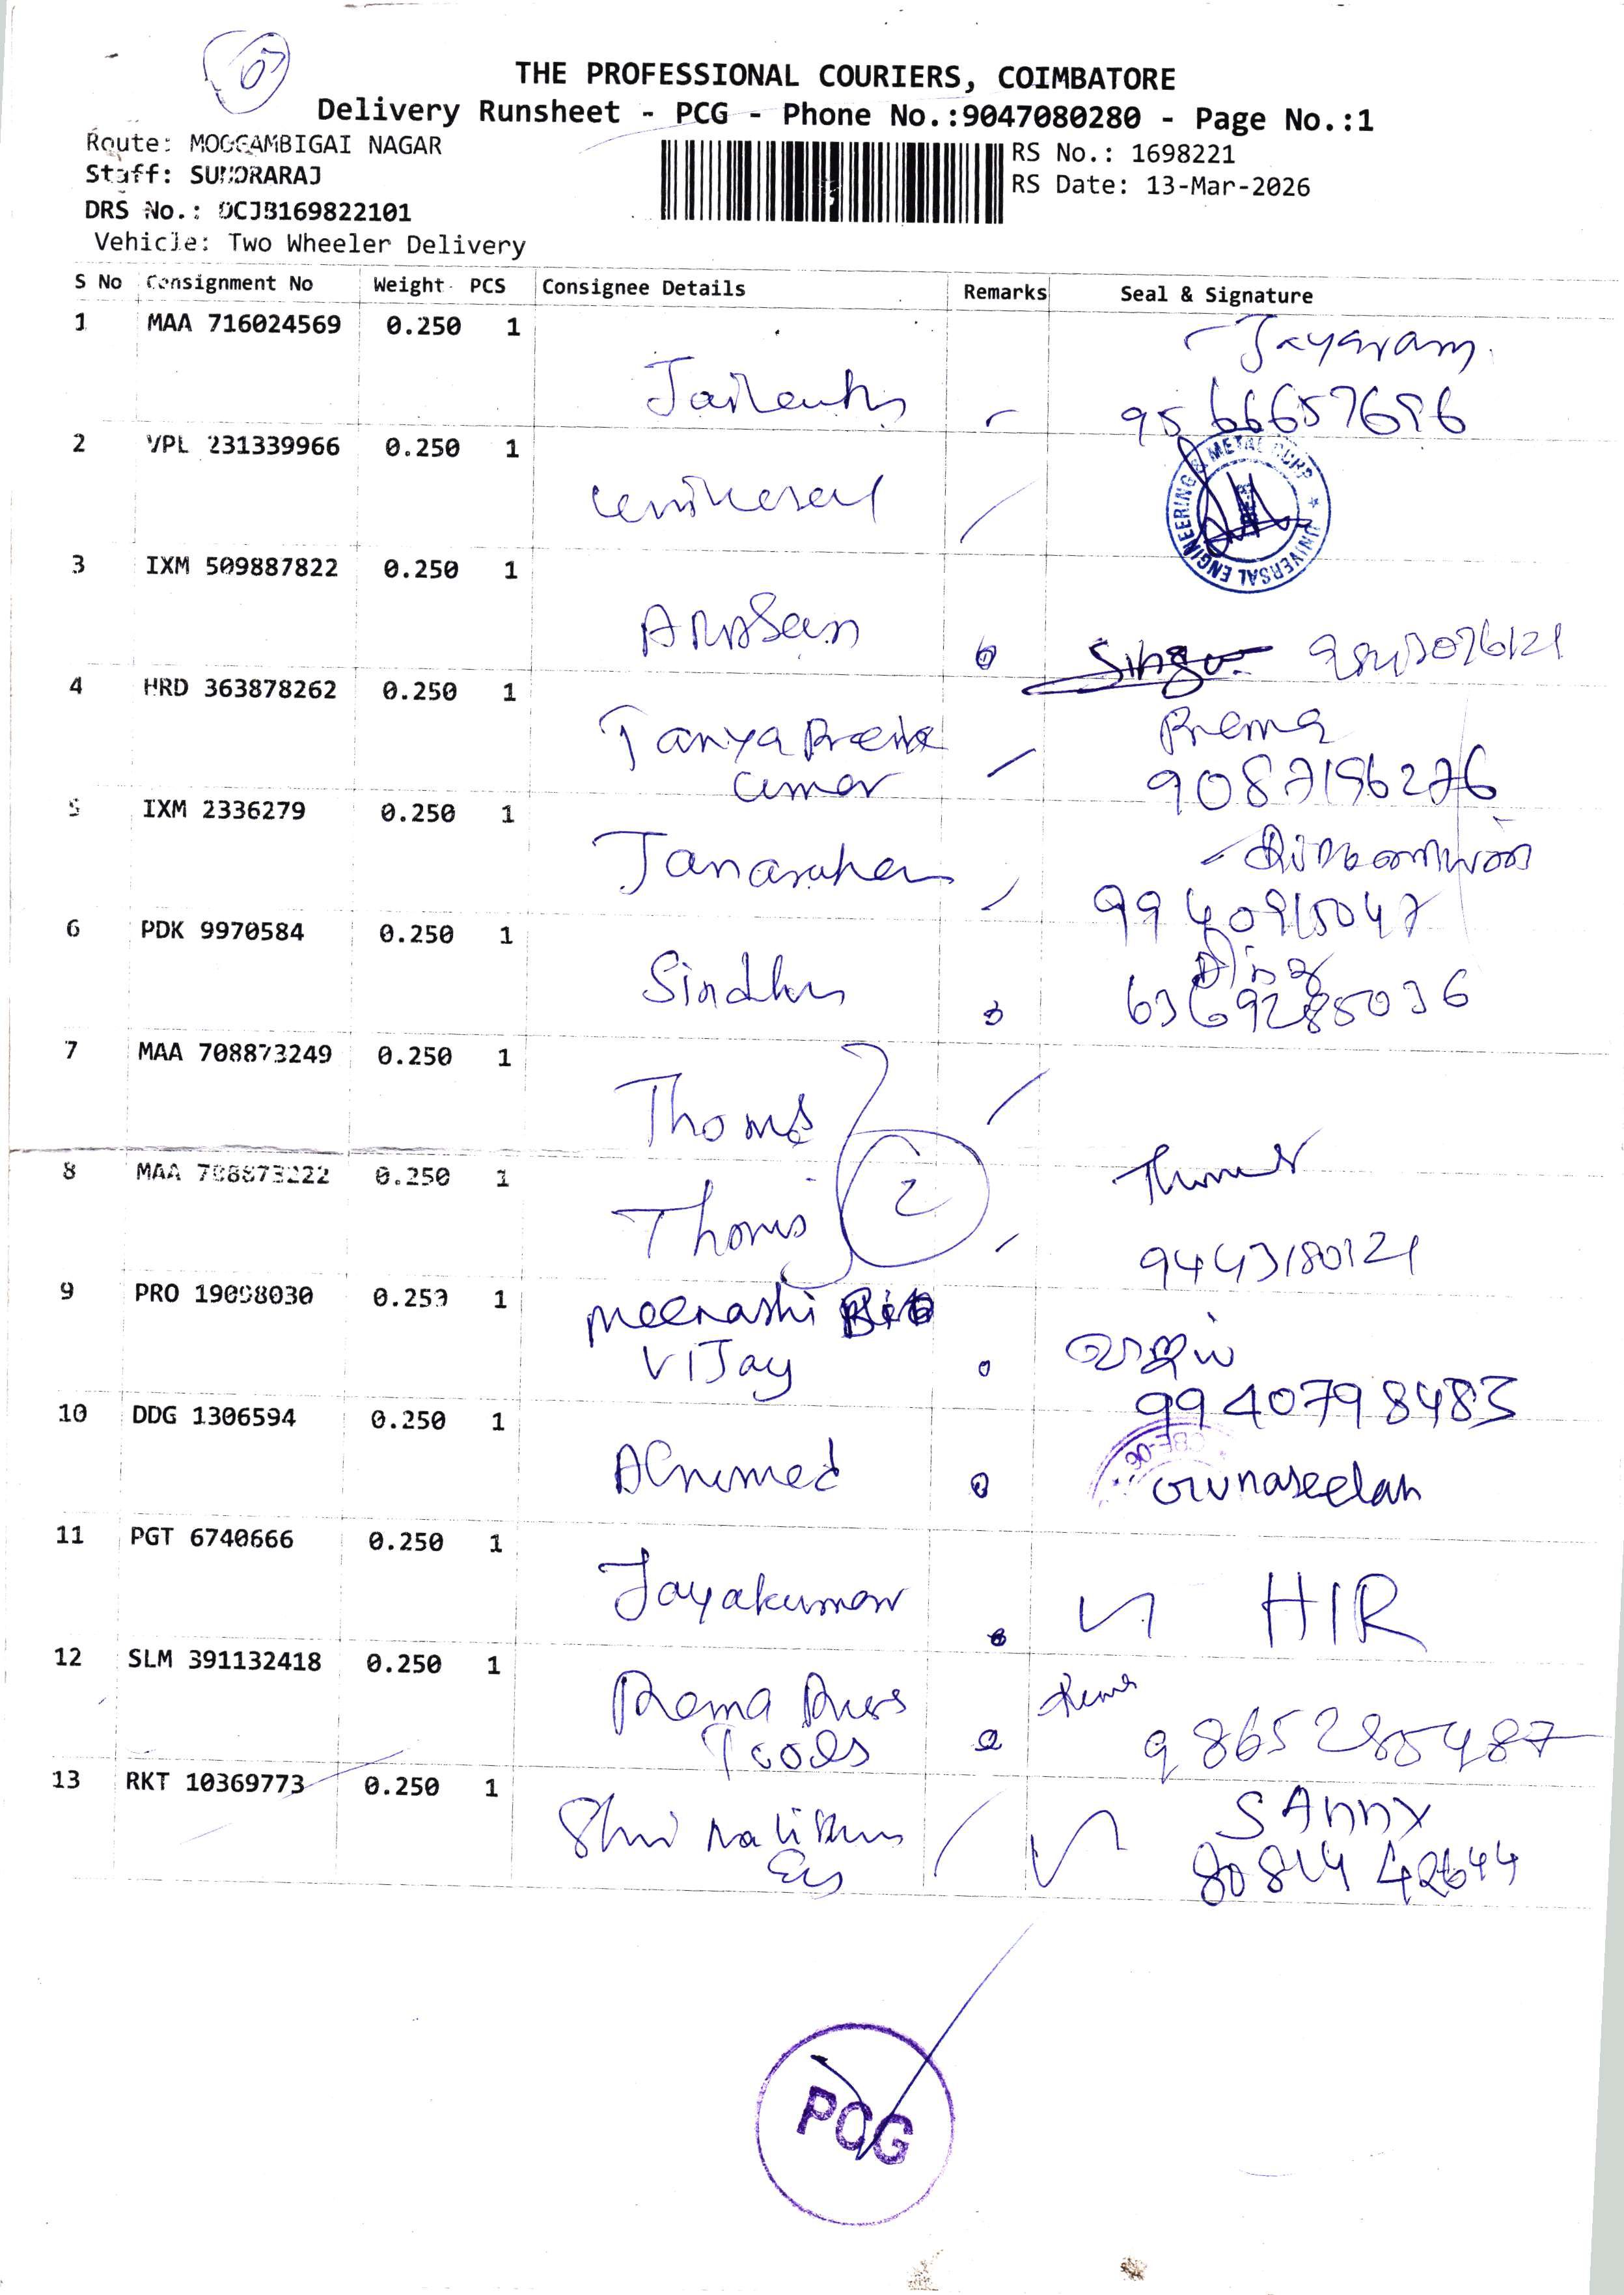 07
THE PROFESSIONAL COURIERS, COIMBATORE
Delivery Runsheet - PCG - Phone No.:9047080280 - Page No.:1
Route: MOOGAMBIGAI NAGAR
RS No.: 1698221
Staff: SUNDRARAJ
RS Date: 13-Mar-2026
DRS No.: DCJB169822101
Vehicle: Two Wheeler Delivery
S No Consignment No Weight PCS Consignee Details Remarks Seal & Signature
1 MAA 716024569 0.250 1
Jayaram
2 VPL 231339966 0.250 1
UNIVERSAL ENGINEERING & METAL CORP
3 IXM 509887822 0.250 1
4 HRD 363878262 0.250 1
Tanya Prema
9087196276
5 IXM 2336279 0.250 1
9940915047
6 PDK 9970584 0.250 1
Sindhu 6369285036
7 MAA 708873249 0.250 1
Thomas
8 MAA 708873222 0.250 1
2
Thomas
9443180121
9 PRO 19098030 0.250 1
meenashi
Vijay
9940798483
10 DDG 1306594 0.250 1
CBE-06
Gunaseelan
11 PGT 6740666 0.250 1
Jayakumar HIR
12 SLM 391132418 0.250 1
Prema
Tools 9865285487
13 RKT 10369773 0.250 1
SAnny
Shri
80814 42644
PCG